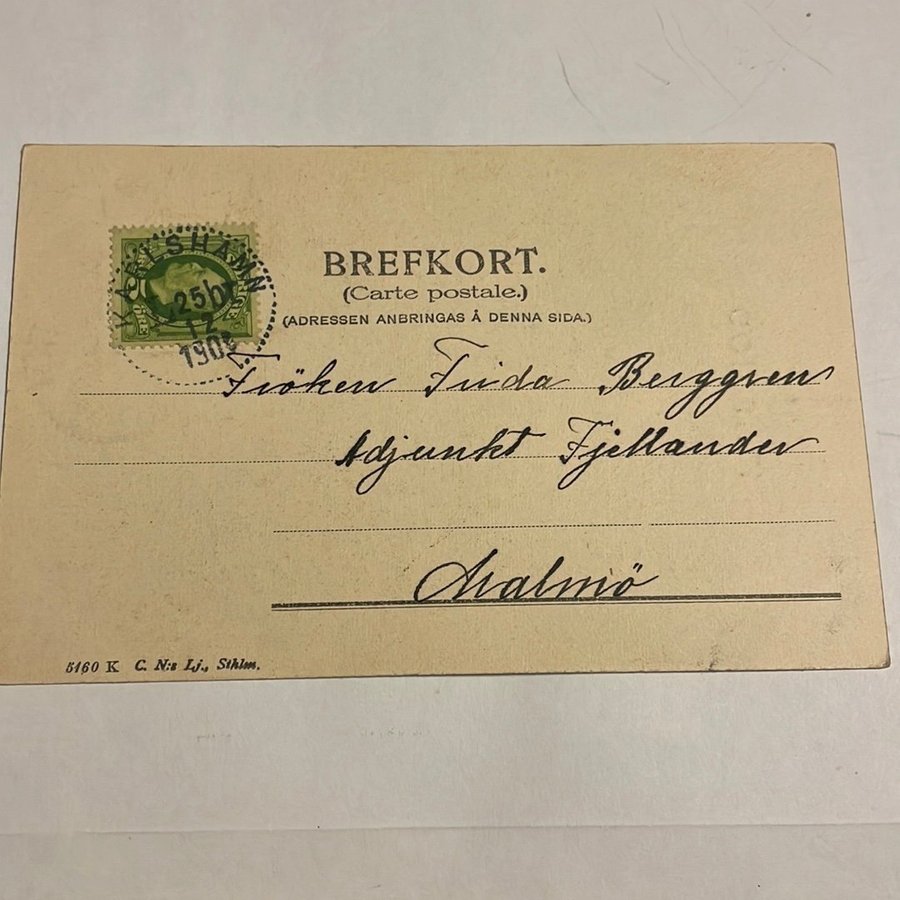 KARLSHAMN
25
12
BREFKORT.
(Carte postale.)
(ADRESSEN ANBRINGAS Å DENNA SIDA.)
Fröken Frida Berggren
Adjunkt Fjellander
Malmö
5160 K C. N:s Lj., Sthlm.